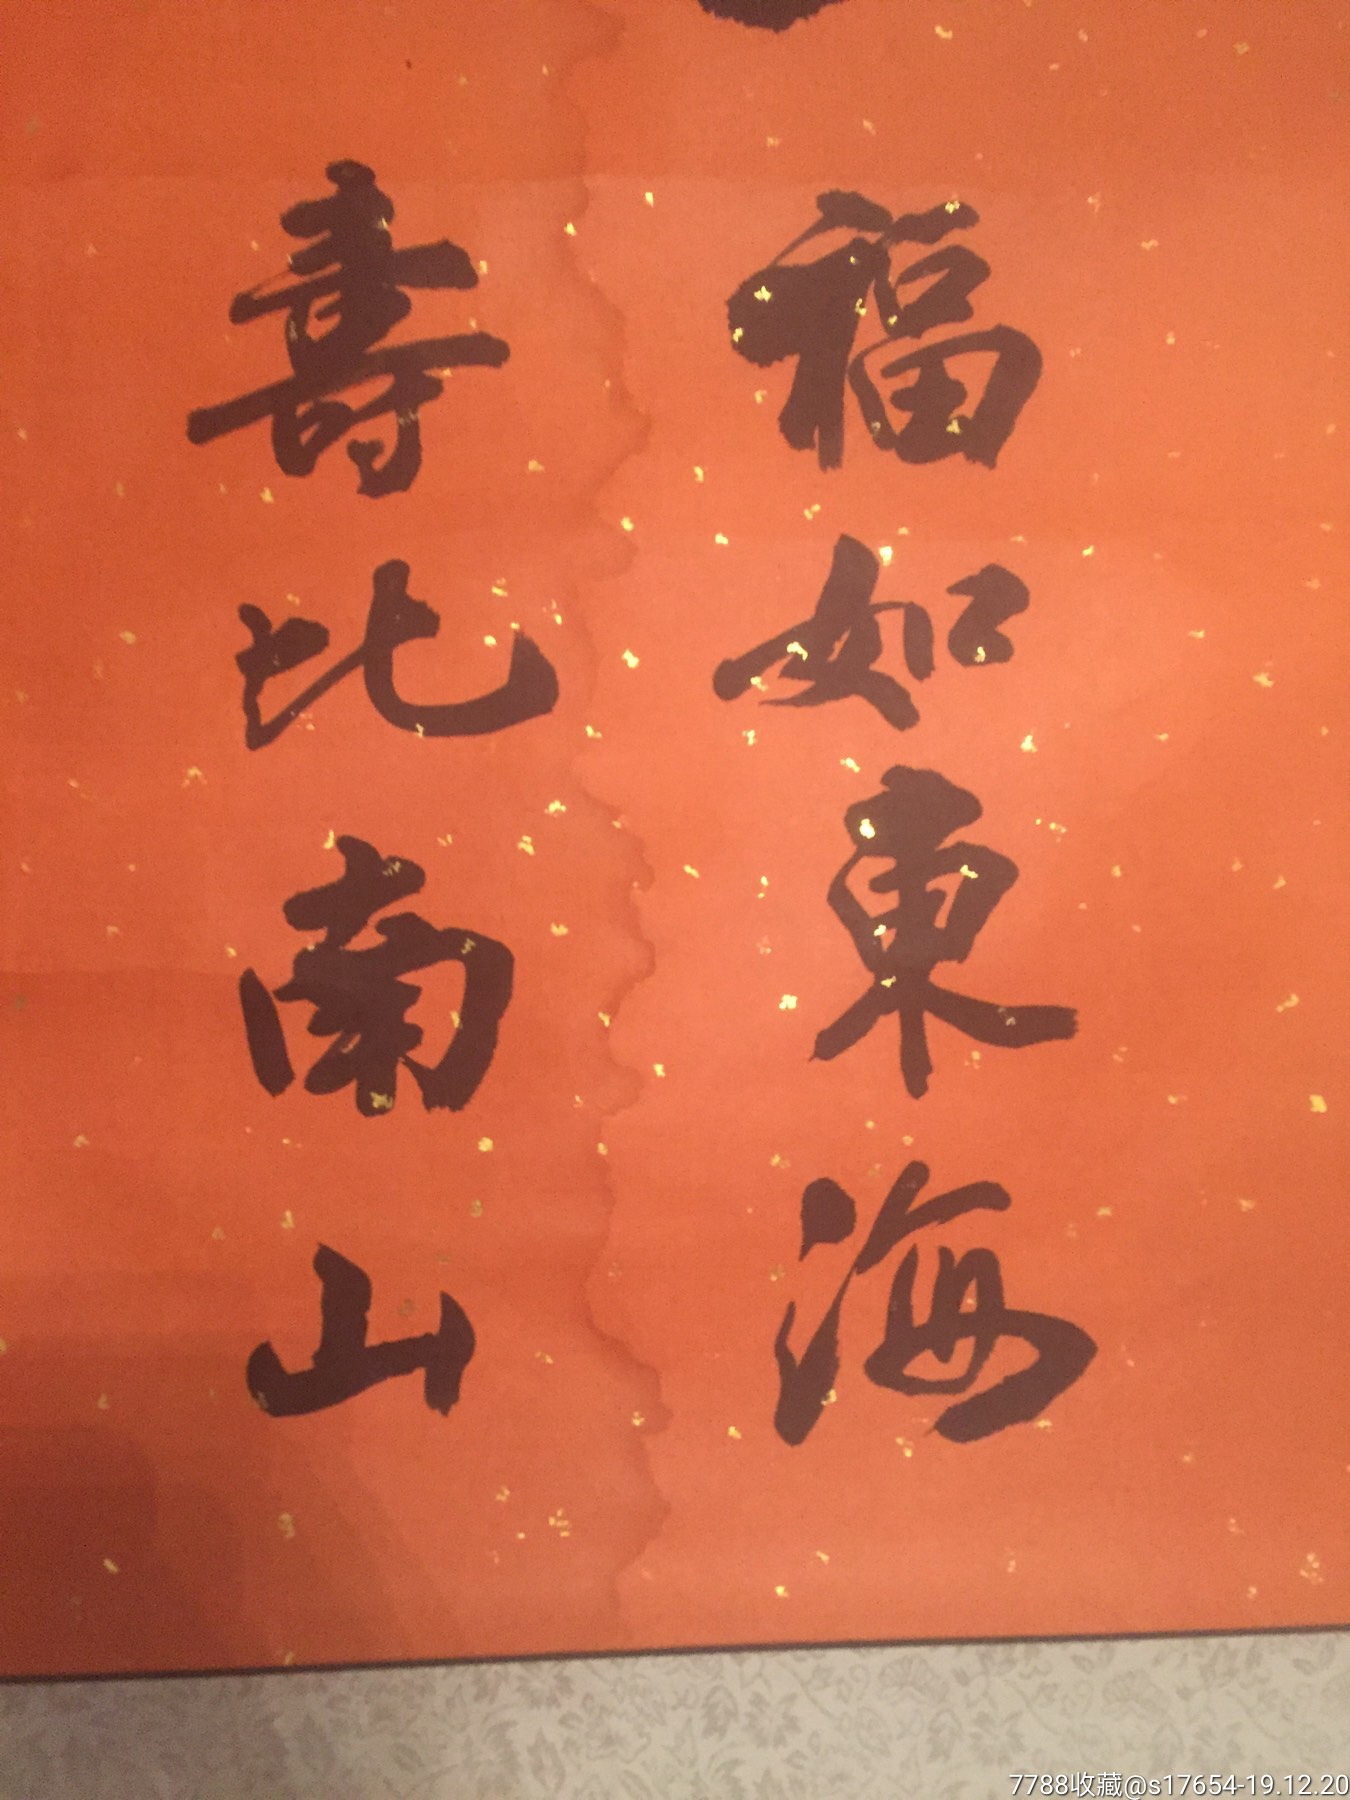 福如東海
壽比南山
7788收藏@s17654-19.12.20